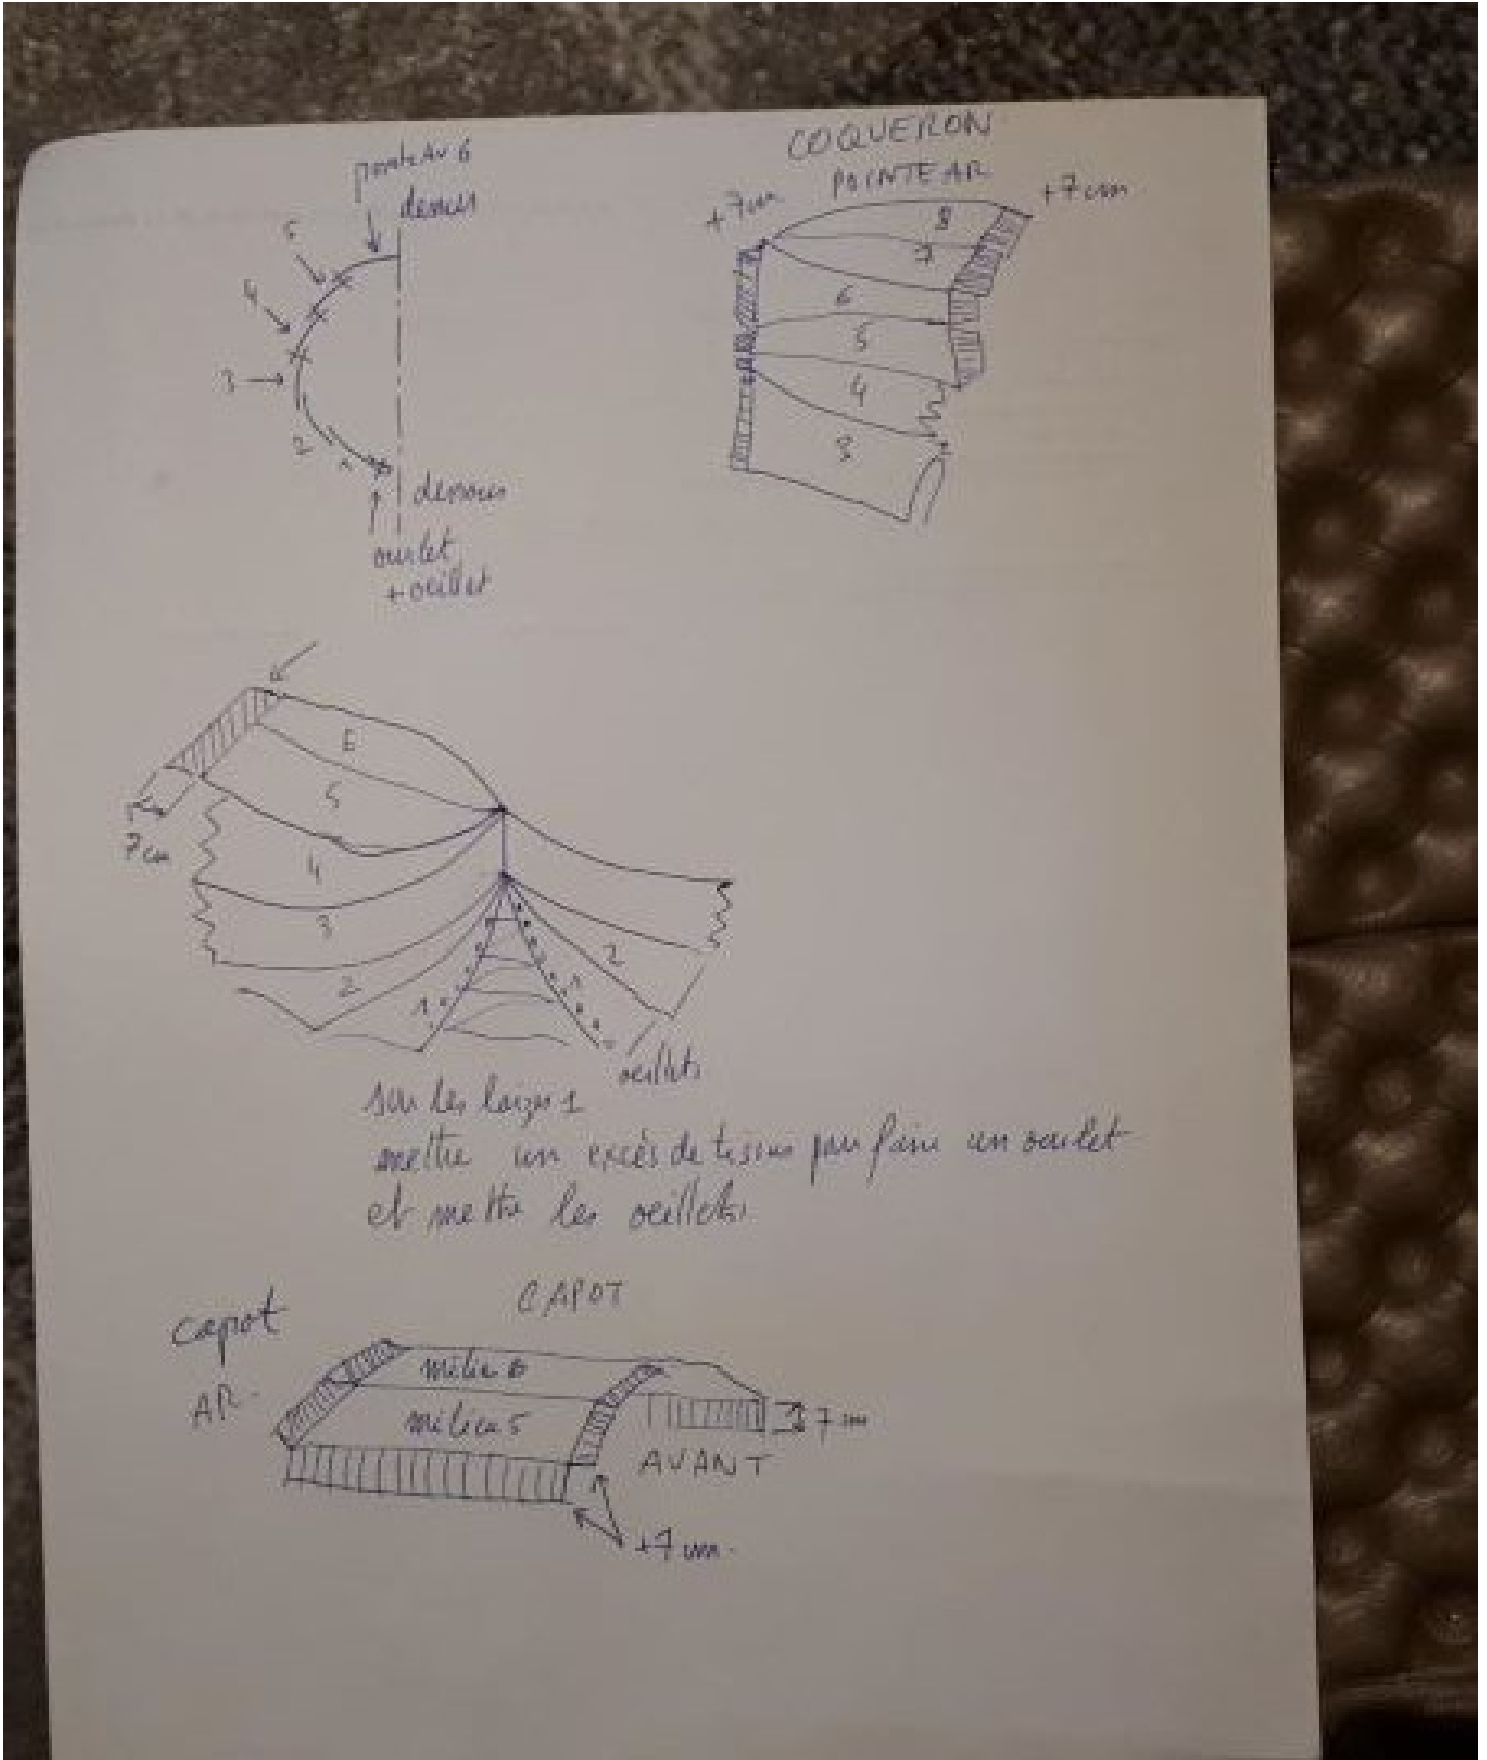 pointe Av 6
dessus
5
4
3
2
1
dessous
ourlet
+ oeillet
COQUERON
POINTE AR
+7cm
+7cm
8
7
6
5
4
3
6
5
4
3
2
1
7cm
2
1
oeillets
sur les laizes 1
mettre un excés de tissus pour faire un ourlet
et mettre les oeillets
CAPOT
capot
AR
milieu 6
milieu 5
7cm
AVANT
+7cm